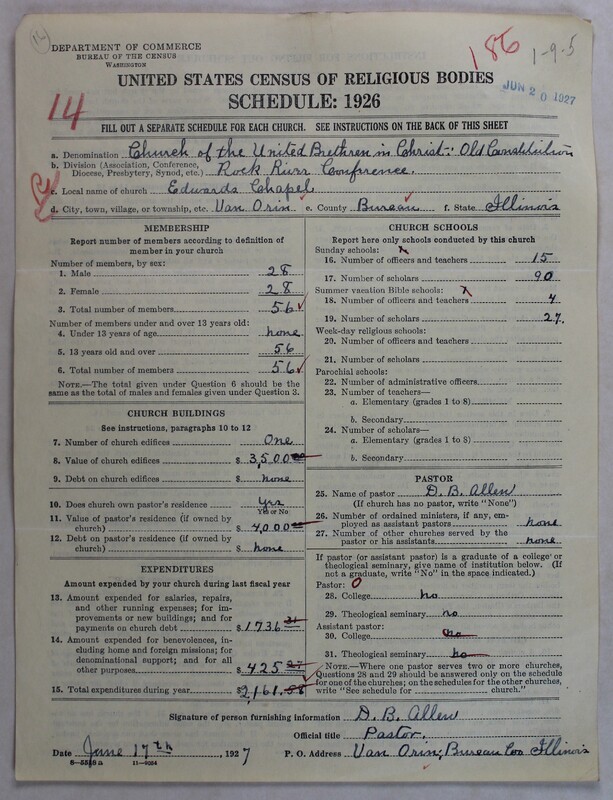 14
DEPARTMENT OF COMMERCE
BUREAU OF THE CENSUS
WASHINGTON
186
1-9-5
JUN 20 1927
UNITED STATES CENSUS OF RELIGIOUS BODIES
SCHEDULE: 1926
14
FILL OUT A SEPARATE SCHEDULE FOR EACH CHURCH. SEE INSTRUCTIONS ON THE BACK OF THIS SHEET
a. Denomination Church of the United Brethren in Christ: Old Constitution
b. Division (Association, Conference, Diocese, Presbytery, Synod, etc.) Rock River Conference.
c. Local name of church Edwards Chapel
d. City, town, village, or township, etc. Van Orin e. County Bureau f. State Illinois
MEMBERSHIP
Report number of members according to definition of member in your church
Number of members, by sex:
1. Male 28
2. Female 28
3. Total number of members 56
Number of members under and over 13 years old:
4. Under 13 years of age none
5. 13 years old and over 56
6. Total number of members 56
NOTE.—The total given under Question 6 should be the same as the total of males and females given under Question 3.
CHURCH BUILDINGS
See instructions, paragraphs 10 to 12
7. Number of church edifices One
8. Value of church edifices $ 3,500 00
9. Debt on church edifices $ none
10. Does church own pastor's residence Yes
Yes or No
11. Value of pastor's residence (if owned by church) $ 4,000 00
12. Debt on pastor's residence (if owned by church) $ none
EXPENDITURES
Amount expended by your church during last fiscal year
13. Amount expended for salaries, repairs, and other running expenses; for improvements or new buildings; and for payments on church debt $ 1736 31
14. Amount expended for benevolences, including home and foreign missions; for denominational support; and for all other purposes $ 425 27
15. Total expenditures during year $ 2,161.58
CHURCH SCHOOLS
Report here only schools conducted by this church
Sunday schools:
16. Number of officers and teachers 15
17. Number of scholars 90
Summer vacation Bible schools:
18. Number of officers and teachers 4
19. Number of scholars 27
Week-day religious schools:
20. Number of officers and teachers
21. Number of scholars
Parochial schools:
22. Number of administrative officers
23. Number of teachers—
a. Elementary (grades 1 to 8)
b. Secondary
24. Number of scholars—
a. Elementary (grades 1 to 8)
b. Secondary
PASTOR
25. Name of pastor D. B. Allen
(If church has no pastor, write "None")
26. Number of ordained ministers, if any, employed as assistant pastors none
27. Number of other churches served by the pastor or his assistants none
If pastor (or assistant pastor) is a graduate of a college or theological seminary, give name of institution below. (If not a graduate, write "No" in the space indicated.)
Pastor: 0
28. College no
29. Theological seminary no
Assistant pastor:
30. College no
31. Theological seminary no
NOTE.—Where one pastor serves two or more churches, Questions 28 and 29 should be answered only on the schedule for one of the churches; on the schedules for the other churches, write "See schedule for church."
Signature of person furnishing information D. B. Allen
Official title Pastor.
Date June 17th, 1927 P. O. Address Van Orin, Bureau Co. Illinois
11—9034